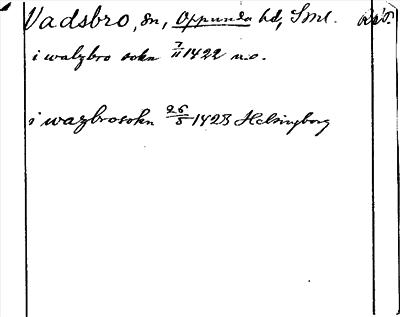 Vadsbro, sn, Oppunda hd, Sml. RAÖ.
i walzbro sokn 7/11 1422 u.o.
i wazbrosokn 26/5 1428 Helsingborg